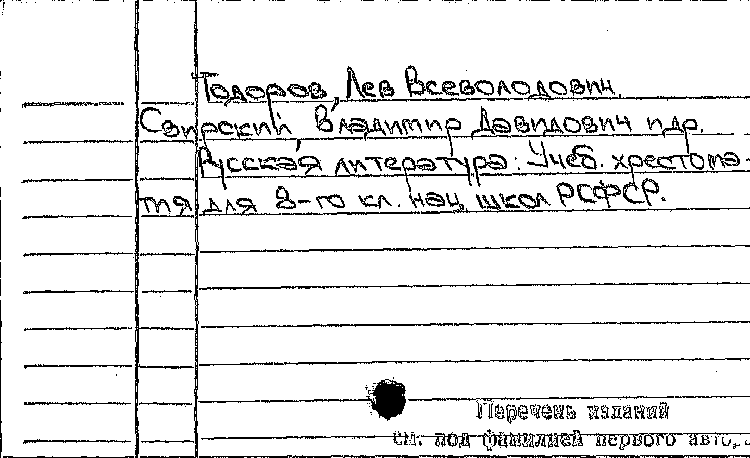 Тодоров, Лев Всеволодович.
Свирский, Владимир Давидович и др.
Русская литература: Учеб. хрестома-
тия для 8-го кл. нац. школ РСФСР.
Перечень изданий
см. под фамилией первого